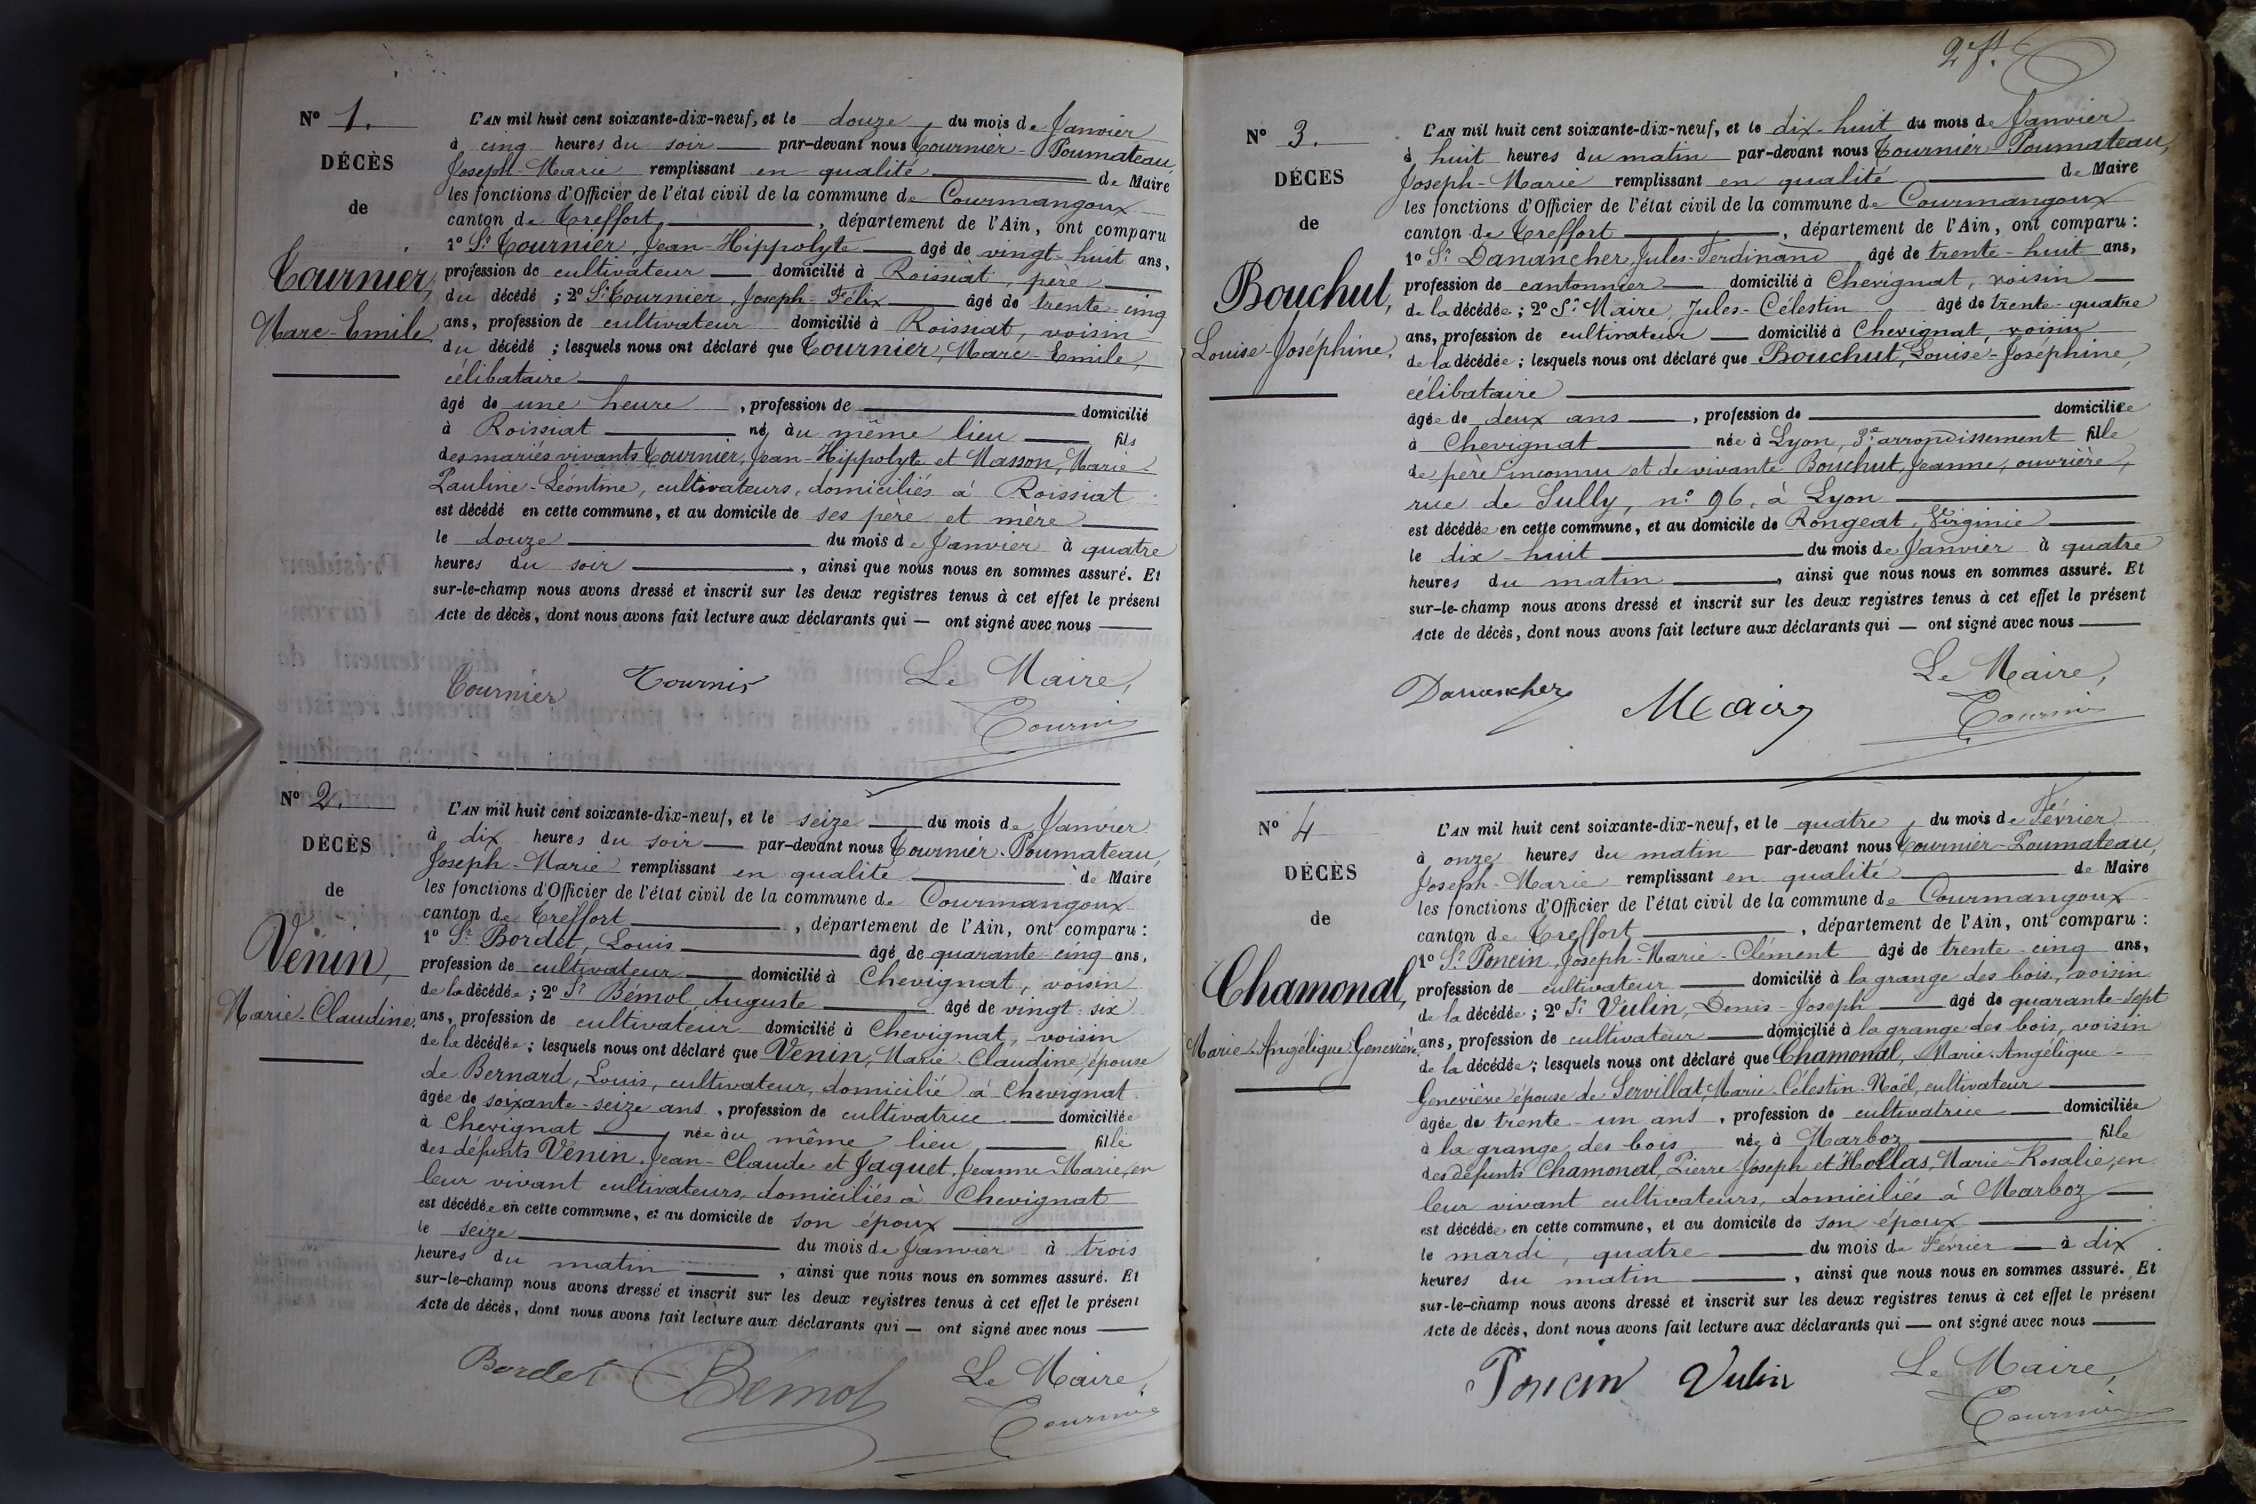 Nº 1.
DÉCÈS
de
Tournier,
Marc-Emile
L'AN mil huit cent soixante-dix-neuf, et le douze du mois de Janvier
à cinq heures du soir par-devant nous Tournier-Poumateau,
Joseph-Marie remplissant en qualité de Maire
les fonctions d'Officier de l'état civil de la commune de Courmangoux
canton de Treffort, département de l'Ain, ont comparu
1º Sr. Tournier, Jean-Hippolyte âgé de vingt-huit ans,
profession de cultivateur domicilié à Roissiat, père
du décédé ; 2º Sr. Tournier, Joseph-Félix âgé de trente-cinq
ans, profession de cultivateur domicilié à Roissiat, voisin
du décédé ; lesquels nous ont déclaré que Tournier, Marc-Emile,
célibataire
âgé de une heure, profession de domicilié
à Roissiat né au même lieu fils
des mariés vivants Tournier, Jean-Hippolyte et Masson, Marie-
Pauline-Léontine, cultivateurs, domiciliés à Roissiat
est décédé en cette commune, et au domicile de ses père et mère
le douze du mois de Janvier à quatre
heures du soir, ainsi que nous nous en sommes assuré. Et
sur-le-champ nous avons dressé et inscrit sur les deux registres tenus à cet effet le présent
Acte de décès, dont nous avons fait lecture aux déclarants qui — ont signé avec nous
Tournier Tournier Le Maire,
Tournier
Nº 2.
DÉCÈS
de
Venin,
Marie-Claudine.
L'AN mil huit cent soixante-dix-neuf, et le seize du mois de Janvier
à dix heures du soir par-devant nous Tournier-Poumateau,
Joseph-Marie remplissant en qualité de Maire
les fonctions d'Officier de l'état civil de la commune de Courmangoux
canton de Treffort, département de l'Ain, ont comparu :
1º Sr. Bordet, Louis âgé de quarante-cinq ans,
profession de cultivateur domicilié à Chevignat, voisin
de la décédée ; 2º Sr. Bémol, Auguste âgé de vingt-six
ans, profession de cultivateur domicilié à Chevignat, voisin
de la décédée ; lesquels nous ont déclaré que Venin, Marie-Claudine, épouse
de Bernard, Louis, cultivateur, domicilié à Chevignat
âgée de soixante-seize ans, profession de cultivatrice domiciliée
à Chevignat, née au même lieu, fille
des défunts Venin, Jean-Claude et Jaquet, Jeanne-Marie, en
leur vivant cultivateurs, domiciliés à Chevignat
est décédée en cette commune, et au domicile de son époux
le seize du mois de Janvier à trois
heures du matin, ainsi que nous nous en sommes assuré. Et
sur-le-champ nous avons dressé et inscrit sur les deux registres tenus à cet effet le présent
Acte de décès, dont nous avons fait lecture aux déclarants qui — ont signé avec nous
Bordet Bémol Le Maire,
Tournier
2e f.
Nº 3.
DÉCÈS
de
Bouchut,
Louise-Joséphine.
L'AN mil huit cent soixante-dix-neuf, et le dix-huit du mois de Janvier
à huit heures du matin par-devant nous Tournier-Poumateau,
Joseph-Marie remplissant en qualité de Maire
les fonctions d'Officier de l'état civil de la commune de Courmangoux
canton de Treffort, département de l'Ain, ont comparu :
1º Sr. Danancher, Jules-Ferdinand âgé de trente-huit ans,
profession de cantonnier domicilié à Chevignat, voisin
de la décédée ; 2º Sr. Maire, Jules-Célestin âgé de trente-quatre
ans, profession de cultivateur domicilié à Chevignat, voisin
de la décédée ; lesquels nous ont déclaré que Bouchut, Louise-Joséphine,
célibataire
âgée de deux ans, profession de domiciliée
à Chevignat née à Lyon, 3e. arrondissement fille
de père inconnu et de vivante Bouchut, Jeanne, ouvrière,
rue de Sully, nº 96, à Lyon
est décédée en cette commune, et au domicile de Rongeat, Virginie
le dix-huit du mois de Janvier à quatre
heures du matin, ainsi que nous nous en sommes assuré. Et
sur-le-champ nous avons dressé et inscrit sur les deux registres tenus à cet effet le présent
Acte de décès, dont nous avons fait lecture aux déclarants qui — ont signé avec nous
Danancher Maire Le Maire,
Tournier
Nº 4
DÉCÈS
de
Chamonal,
Marie-Angélique-Geneviève.
L'AN mil huit cent soixante-dix-neuf, et le quatre du mois de Février
à onze heures du matin par-devant nous Tournier-Poumateau,
Joseph-Marie remplissant en qualité de Maire
les fonctions d'Officier de l'état civil de la commune de Courmangoux
canton de Treffort, département de l'Ain, ont comparu :
1º Sr. Poncin, Joseph-Marie-Clément âgé de trente-cinq ans,
profession de cultivateur domicilié à la grange des bois, voisin
de la décédée ; 2º Sr. Vulin, Denis-Joseph âgé de quarante-sept
ans, profession de cultivateur domicilié à la grange des bois, voisin
de la décédée ; lesquels nous ont déclaré que Chamonal, Marie-Angélique-
Geneviève épouse de Servillat, Marie-Célestin-Noël, cultivateur
âgée de trente-un ans, profession de cultivatrice domiciliée
à la grange des bois née à Marboz fille
des défunts Chamonal, Pierre-Joseph et Hollas, Marie-Rosalie, en
leur vivant cultivateurs, domiciliés à Marboz
est décédée en cette commune, et au domicile de son époux
le mardi, quatre du mois de Février à dix
heures du matin, ainsi que nous nous en sommes assuré. Et
sur-le-champ nous avons dressé et inscrit sur les deux registres tenus à cet effet le présent
Acte de décès, dont nous avons fait lecture aux déclarants qui — ont signé avec nous
Poncin Vulin Le Maire,
Tournier